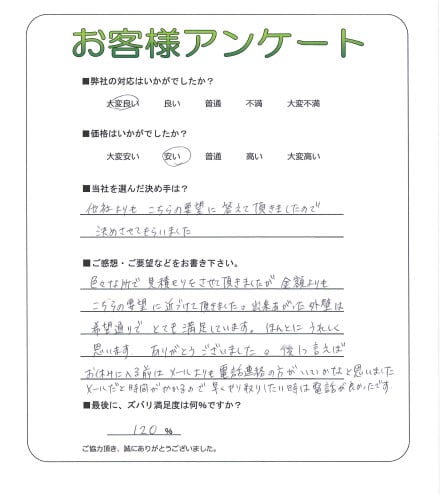 お客様アンケート
■弊社の対応はいかがでしたか?
大変良い 良い 普通 不満 大変不満
■価格はいかがでしたか?
大変安い 安い 普通 高い 大変高い
■当社を選んだ決め手は?
他社よりも こちらの要望に 答えて 頂きましたので
決めさせてもらいました
■ご感想・ご要望などをお書き下さい。
色々な所で 見積もりをさせて頂きましたが 金額よりも
こちらの要望に近づけて頂きました。出来上がった外壁は
希望通りで とても満足しています。ほんとに うれしく
思います ありがとうございました。後1つ言えば
お休みに入る前は メールよりも 電話連絡の方がいいかなと思いました
メールだと時間がかかるので早くやり取りしたい時は電話が良かったです
■最後に、ズバリ満足度は何%ですか?
120 %
ご協力頂き、誠にありがとうございました。